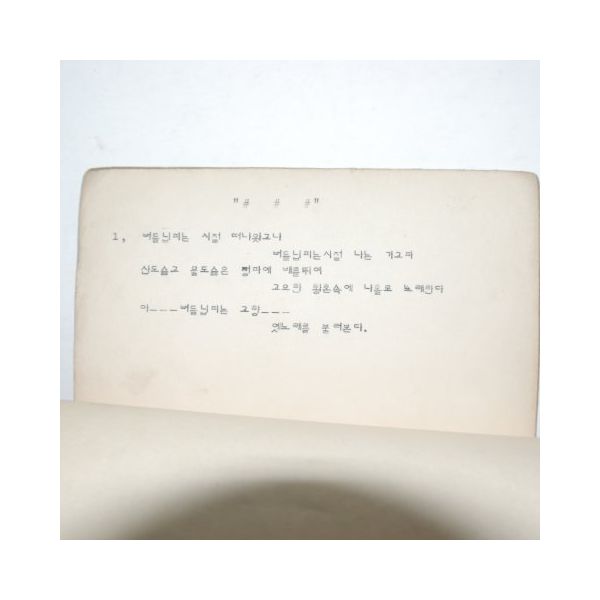 "# # #"
1, 버들닢피는 시절 떠나왔고나
버들닢피는시절 나는 가고파
산도슬고 물도슬은 에 배를띄여
고요한 황혼속에 나홀로 노래한다
아---버들닢피는 고향---
옛노래를 불러본다.